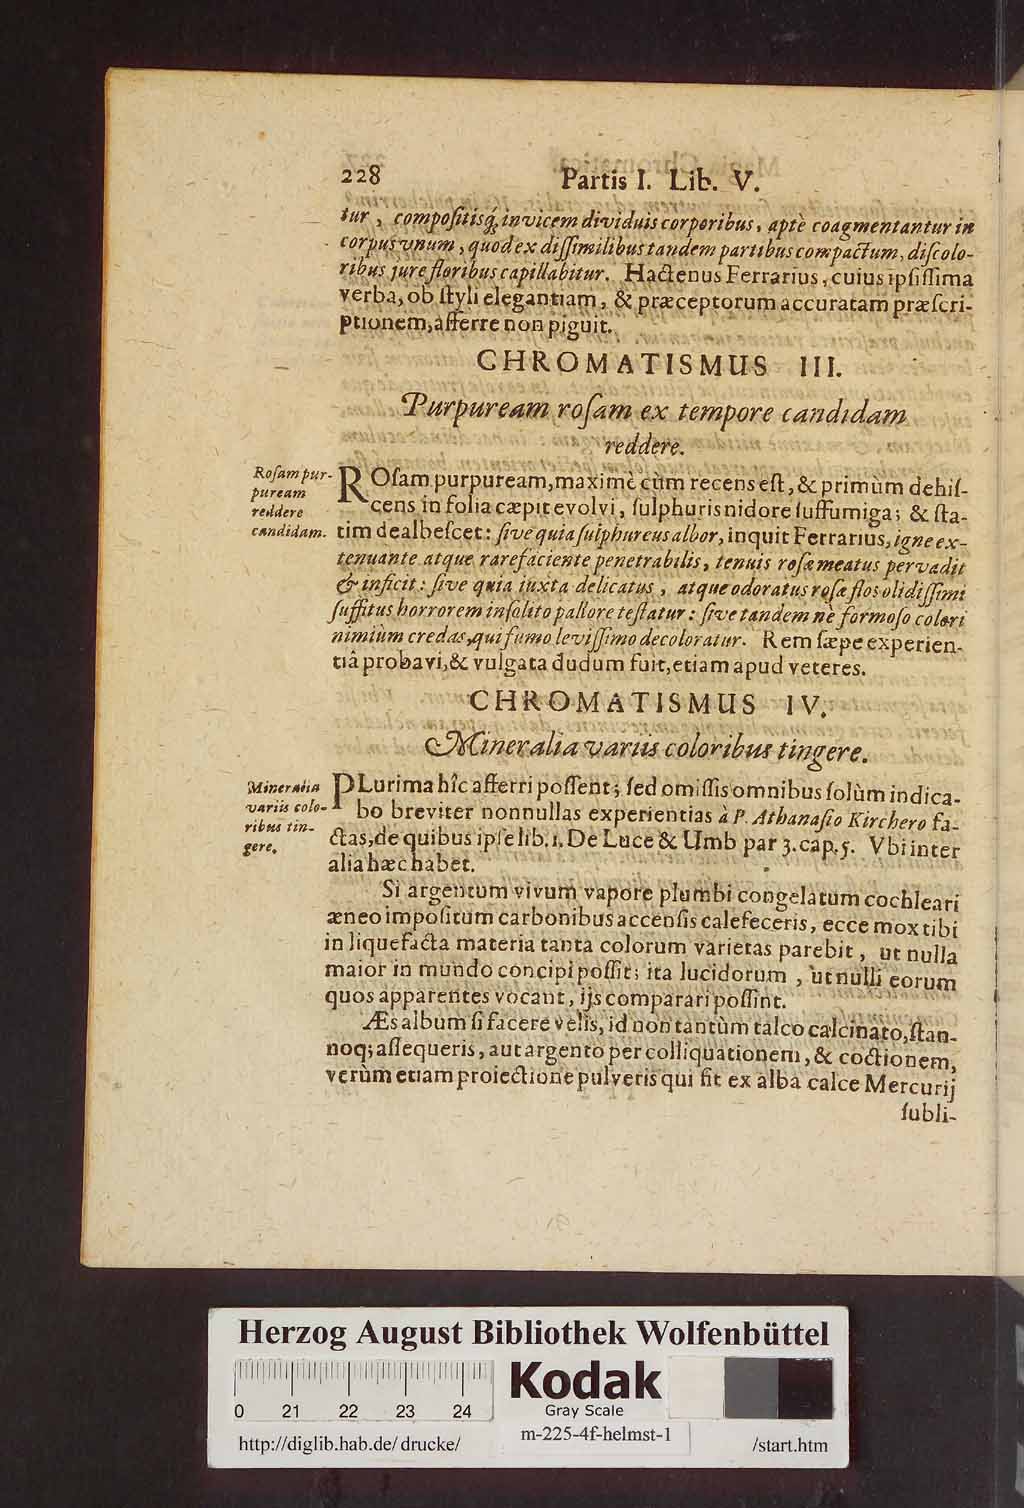 228 Partis I. Lib. V.
tur, compoſitisq́; invicem dividuis corporibus, aptè coagmentantur in
corpus vnum, quod ex diſſimilibus tandem partibus compactum, diſcolo-
ribus jure floribus capillabitur. Hactenus Ferrarius, cuius ipſiſſima
verba, ob ſtyli elegantiam, & præceptorum accuratam præſcri-
ptionem, afferre non piguit.
CHROMATISMUS III.
Purpuream roſam ex tempore candidam
reddere.
Roſam pur-
puream
reddere
candidam.
ROſam purpuream, maximè cùm recens eſt, & primùm dehiſ-
cens in folia cæpit evolvi, ſulphuris nidore ſuffumiga; & ſta-
tim dealbeſcet: ſive quia ſulphureus albor, inquit Ferrarius, igne ex-
tenuante atque rarefaciente penetrabilis, tenuis roſæ meatus pervadit
& inficit: ſive quia iuxta delicatus, atque odoratus roſæ flos olidiſſimi
ſuffitus horrorem inſolito pallore teſtatur: ſive tandem nè formoſo colori
nimiùm credas, qui fumo leviſſimo decoloratur. Rem ſæpe experien-
tiâ probavi, & vulgata dudum fuit, etiam apud veteres.
CHROMATISMUS IV.
Mineralia variis coloribus tingere.
Mineralia
variis colo-
ribus tin-
gere.
PLurima hîc afferri poſſent; ſed omiſſis omnibus ſolùm indica-
bo breviter nonnullas experientias à P. Athanaſio Kirchero fa-
ctas, de quibus ipſe lib. 1. De Luce & Umb par 3. cap. 5. Vbi inter
alia hæc habet.
Si argentum vivum vapore plumbi congelatum cochleari
æneo impoſitum carbonibus accenſis calefeceris, ecce mox tibi
in liquefacta materia tanta colorum varietas parebit, ut nulla
maior in mundo concipi poſſit; ita lucidorum, ut nulli eorum
quos apparentes vocant, ijs comparari poſſint.
Æs album ſi facere velis, id non tantùm talco calcinato, ſtan-
noq; aſſequeris, aut argento per colliquationem, & coctionem,
verùm etiam proiectione pulveris qui fit ex alba calce Mercurij
ſubli-
Herzog August Bibliothek Wolfenbüttel
0 21 22 23 24
Kodak
Gray Scale
http://diglib.hab.de/drucke/ m-225-4f-helmst-1 /start.htm